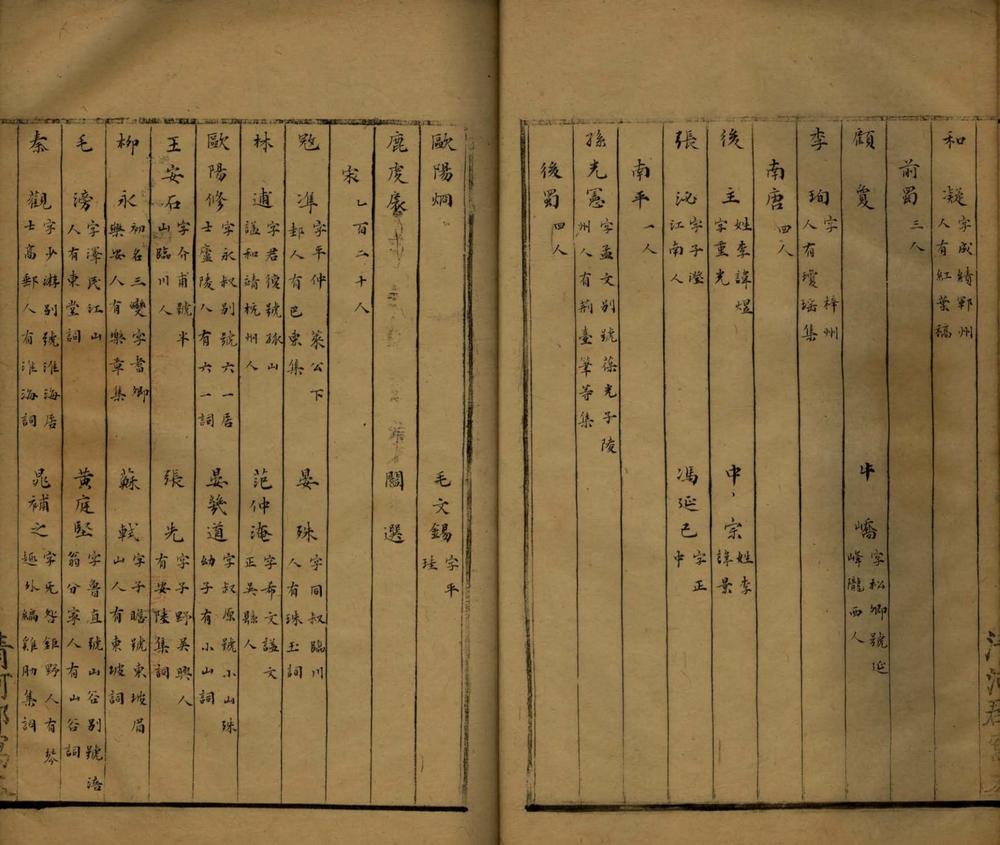 和凝 字成績鄆州人有紅葉稿
前蜀 三人
顧敻 牛嶠 字松卿號延峰隴西人
李珣 字 梓州人有瓊瑶集
南唐 四人
後主 姓李諱煜字重光 中宗 姓李諱景
張泌 字子澄江南人 馮延巳 字正中
南平 一人
孫光憲 字孟文別號葆光子陵州人有荆臺筆等集
後蜀 四人
歐陽烱 毛文錫 字平珪
鹿虔扆 閻選
宋 乙百二十人
寇準 字平仲 萊公下邽人有巴東集 晏殊 字同叔臨川人有珠玉詞
林逋 字君復號孤山謚和靖杭州人 范仲淹 字希文謚文正吳縣人
歐陽修 字永叔別號六一居士廬陵人有六一詞 晏幾道 字叔原號小山殊幼子有小山詞
王安石 字介甫號半山臨川人 張先 字子野吳興人有安陵集詞
柳永 初名三變字耆卿樂安人有樂章集 蘇軾 字子瞻號東坡眉山人有東坡詞
毛滂 字澤民江山人有東堂詞 黃庭堅 字魯直號山谷別號涪翁分寧人有山谷詞
秦觀 字少游別號淮海居士高郵人有淮海詞 晁補之 字旡咎鉅野人有琴趣外編雞肋集詞